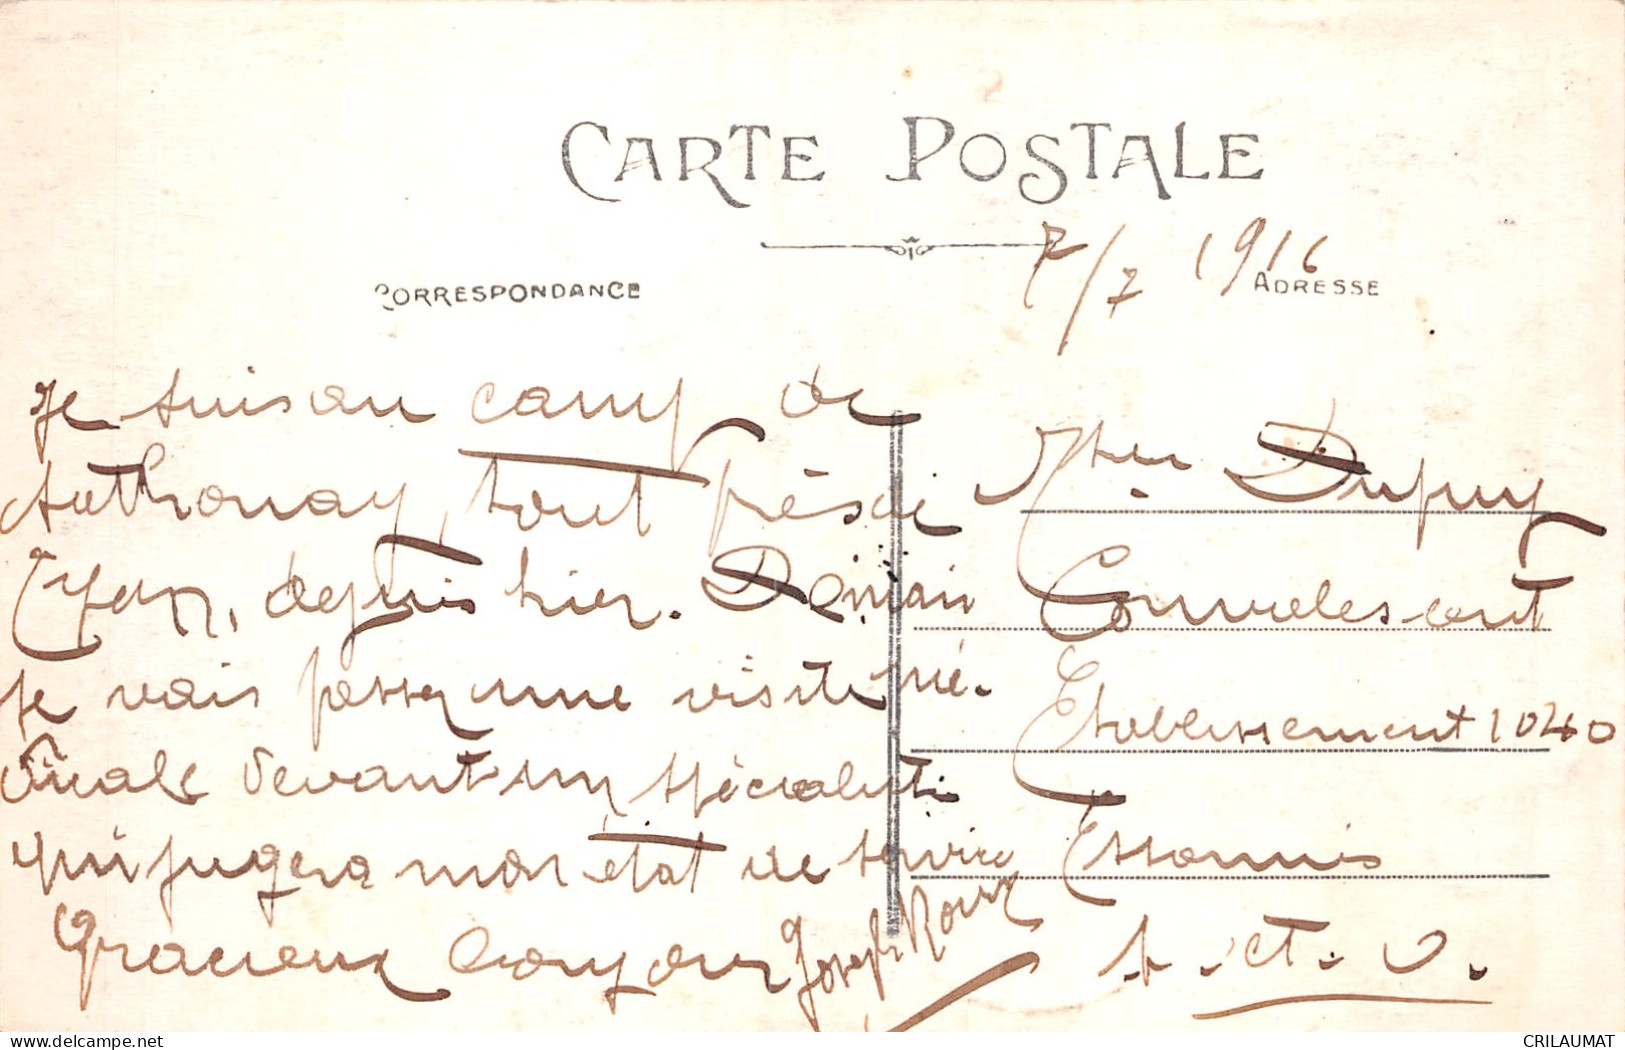 CARTE POSTALE
7/7 1916
CORRESPONDANCE
ADRESSE
Je suis au camp de
Sathonay, tout près de
Lyon, depuis hier. Demain
je vais passer une visite mé-
dicale devant un spécialiste
qui jugera mon état de service
Gracieux bonjour Joseph Roux
Dupuy
Convalescent
Etablissement 1040
Essonnes
S. et. O.
delcampe.net
CRILAUMAT